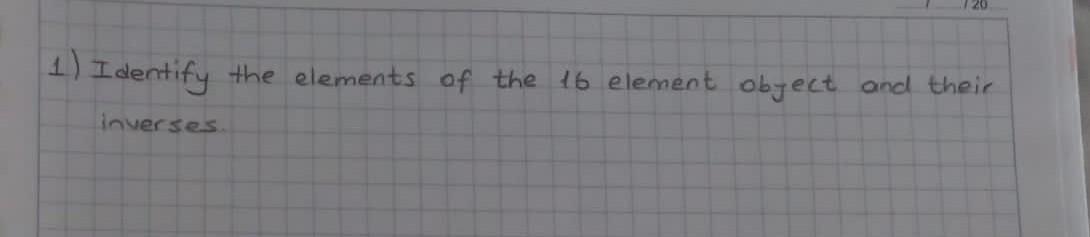 / /20
1) Identify the elements of the 16 element object and their
inverses.